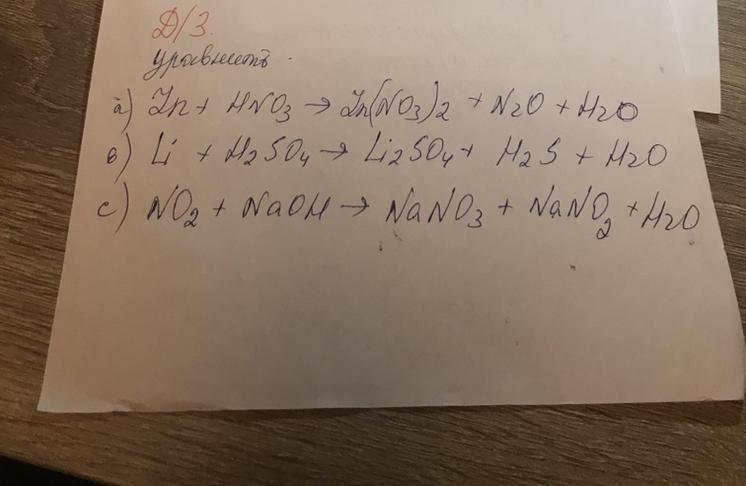 Д/З.
уравнять.
a) Zn + HNO3 → Zn(NO3)2 + N2O + H2O
в) Li + H2SO4 → Li2SO4 + H2S + H2O
c) NO2 + NaOH → NaNO3 + NaNO2 + H2O